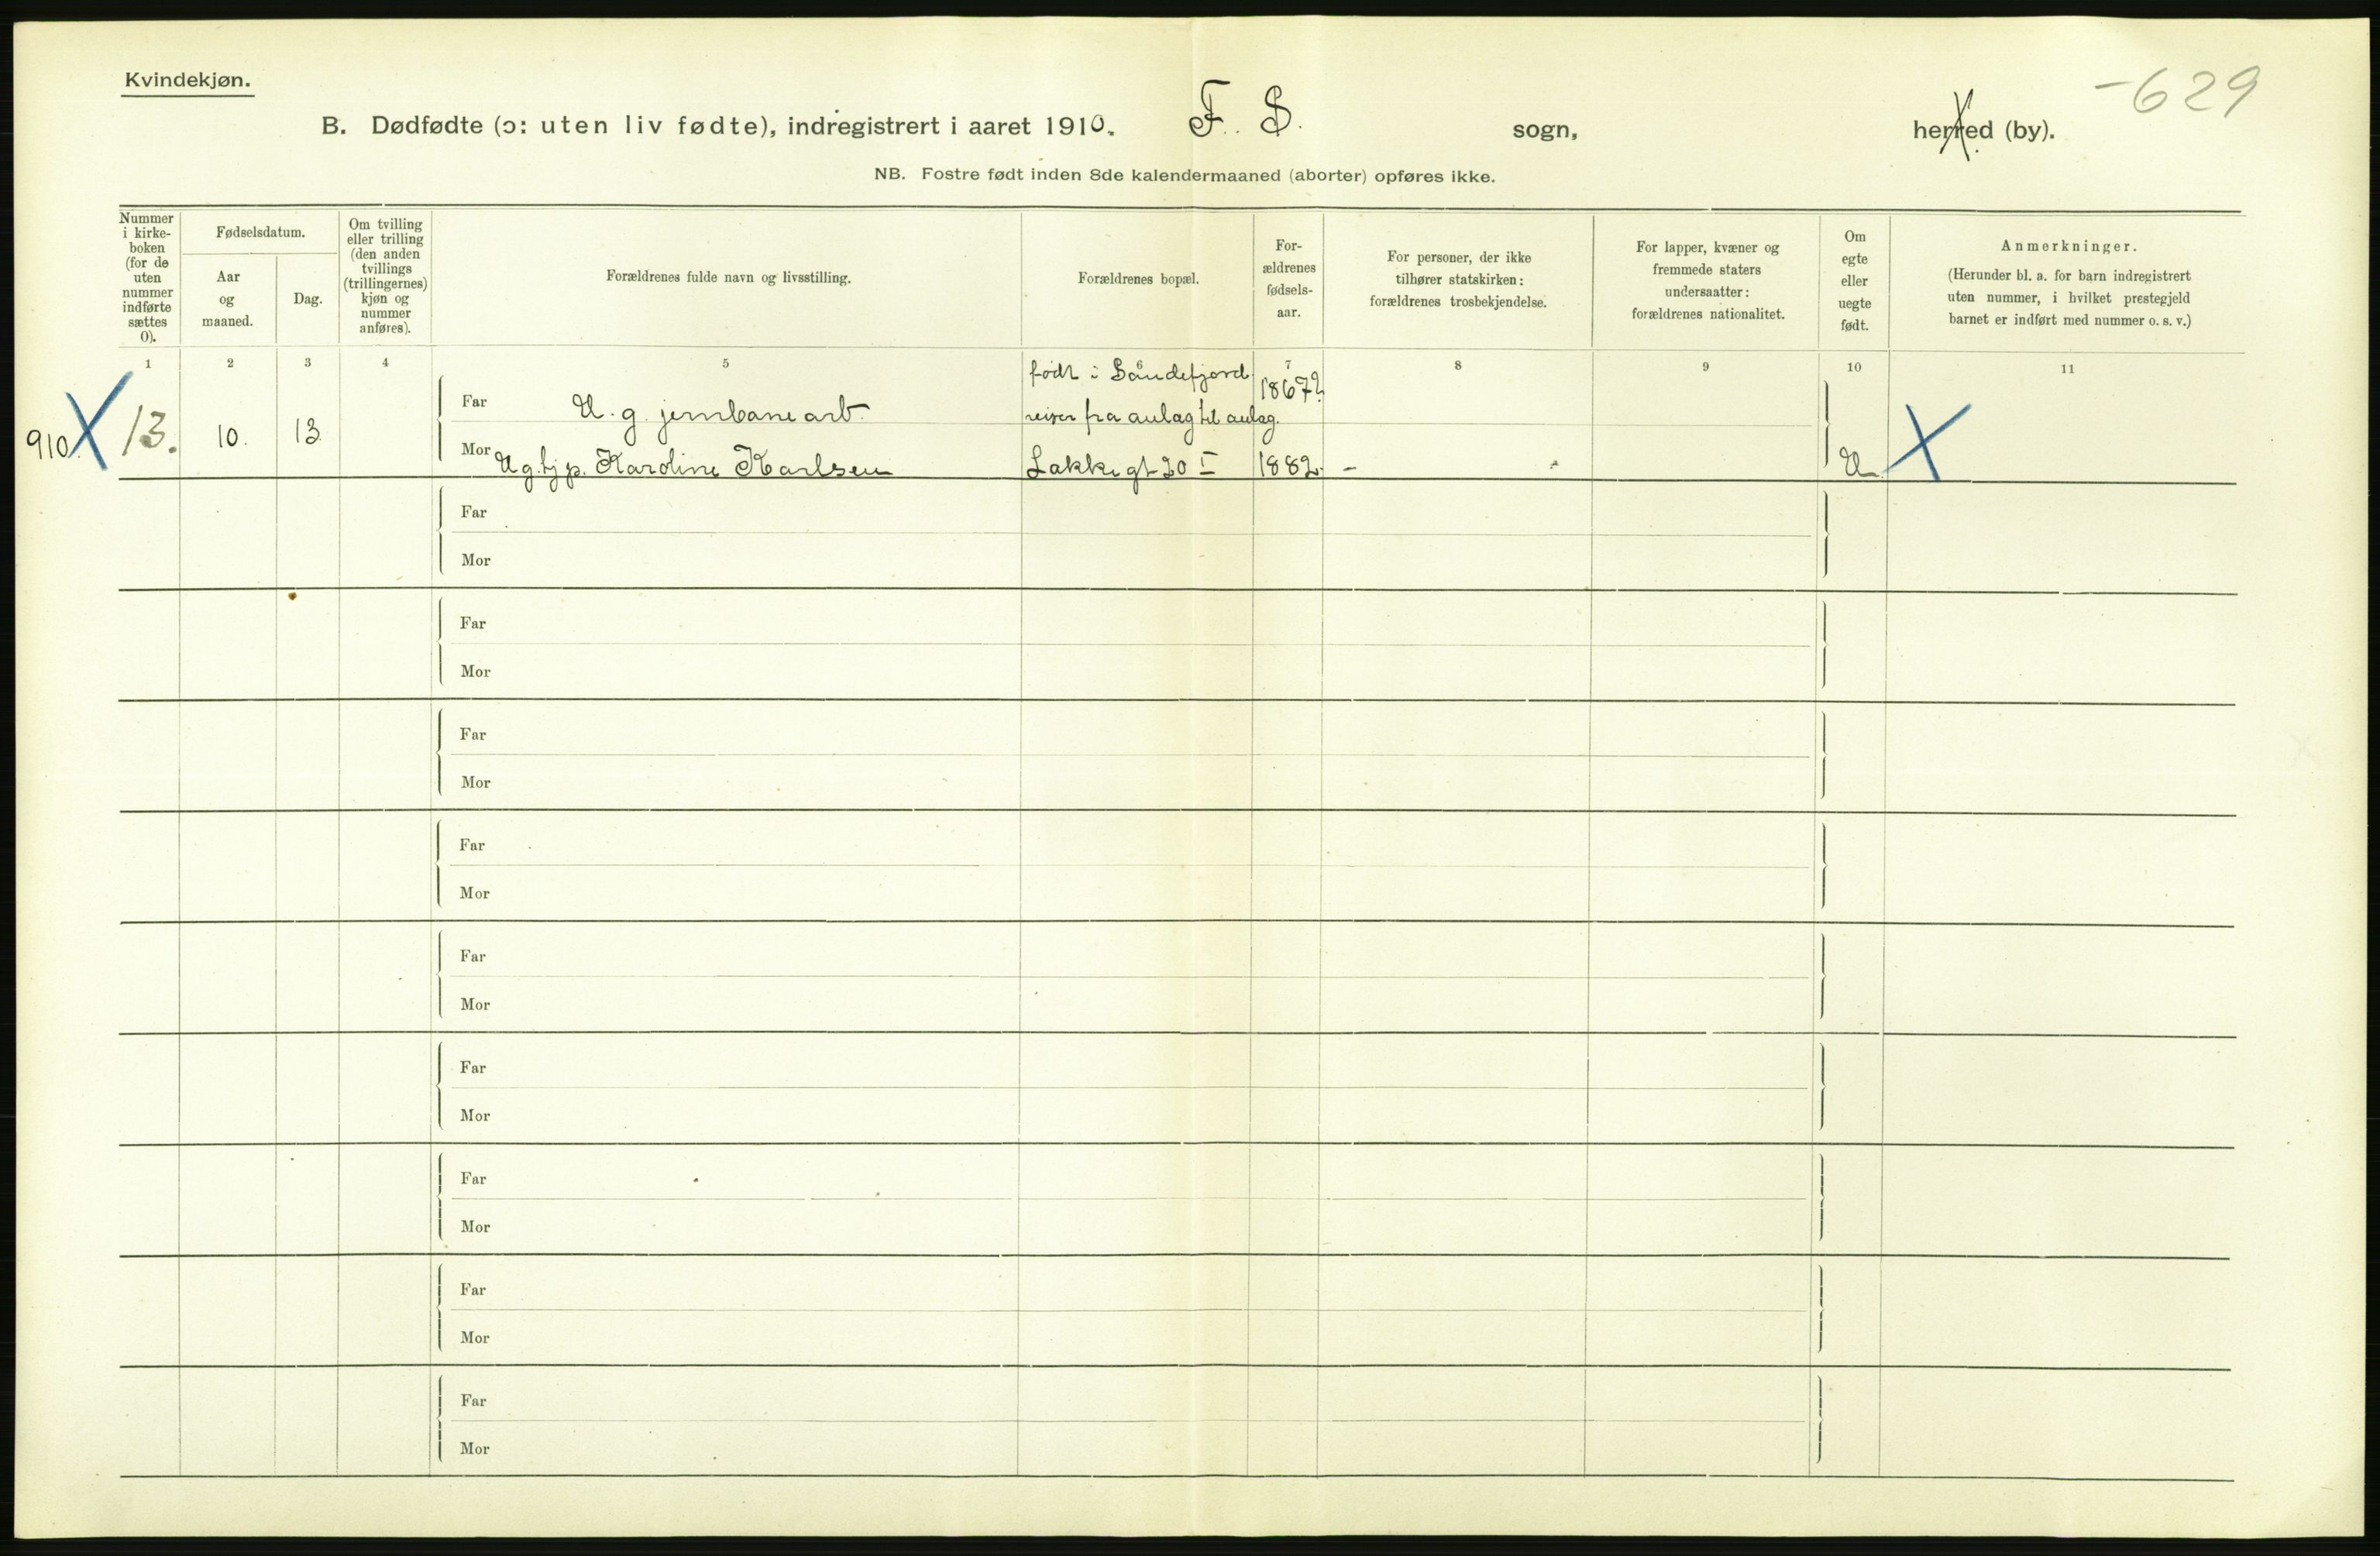 Kvindekjøn.
-629
B. Dødfødte (ɔ: uten liv fødte), indregistrert i aaret 1910. F. S. sogn, herred (by).
NB. Fostre født inden 8de kalendermaaned (aborter) opføres ikke.
Nummer
i kirke-
boken
(for de
uten
nummer
indførte
sættes
0).
Fødselsdatum.
Aar
og
maaned.
Dag.
Om tvilling
eller trilling
(den anden
tvillings
(trillingernes)
kjøn og
nummer
anføres).
Forældrenes fulde navn og livsstilling.
Forældrenes bopæl.
For-
ældrenes
fødsels-
aar.
For personer, der ikke
tilhører statskirken:
forældrenes trosbekjendelse.
For lapper, kvæner og
fremmede staters
undersaatter:
forældrenes nationalitet.
Om
egte
eller
uegte
født.
Anmerkninger.
(Herunder bl. a. for barn indregistrert
uten nummer, i hvilket prestegjeld
barnet er indført med nummer o. s. v.)
1 2 3 4 5 7 8 9 10 11
født i Sandefjord 1867?
Far U. g. jernbanearb. reiser fra anlag til anlag.
910. X 13. 10. 13
Mor U g. tj p. Karoline Karlsen Lakkegt 20 I 1882. - U X
Far
Mor
Far
Mor
Far
Mor
Far
Mor
Far
Mor
Far
Mor
Far
Mor
Far
Mor
Far
Mor